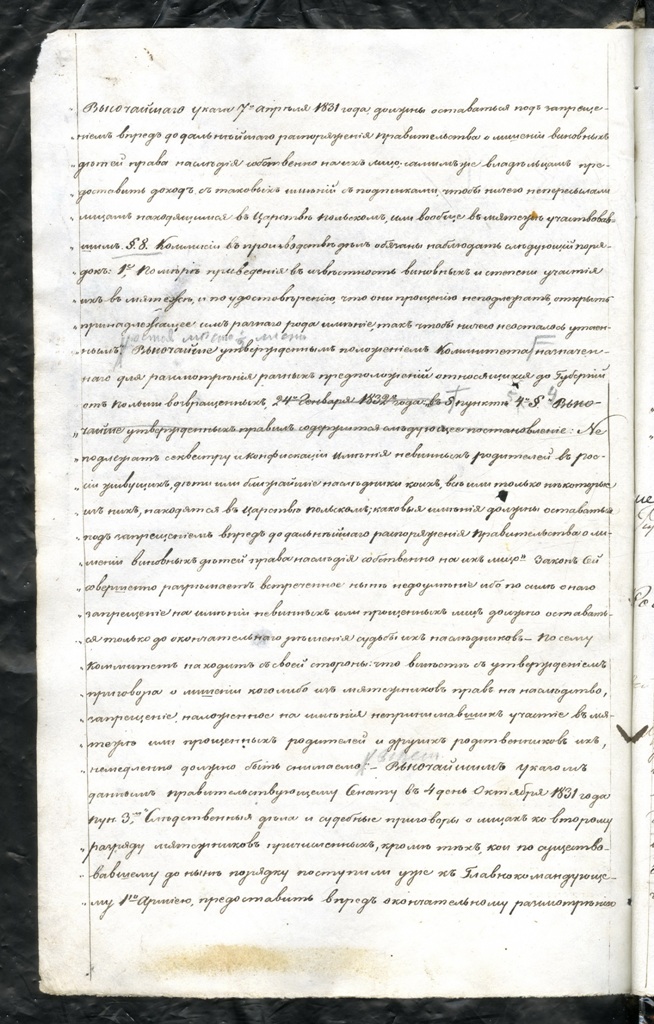 Высочайшаго указа 7го апреля 1831 года, должны оставаться подъ запреще-
„ніемъ впредь до дальнѣйшаго распоряженія Правительства о лишеніи виновныхъ
„дѣтей права наслѣдія собственно на ихъ лицо; самимъ же владѣльцамъ пре-
„доставить доходъ съ таковыхъ имѣній съ подписками, чтобы ничего не пересылали
„лицамъ находящимся въ Царствѣ Польскомъ, или вообще въ мятежѣ участвовав-
„шимъ. §. 8. Коммисіи въ производствѣ дѣлъ обязаны наблюдать слѣдующій поря-
„докъ: 1е По мѣрѣ приведенія въ извѣстность виновныхъ и степени участія
„ихъ въ мятежѣ, и по удостовѣренію, что они прощенію неподлежатъ, открыть
„принадлежащее имъ разнаго рода имѣніе такъ чтобы ничего неосталось утаен-
„нымъ. Высочайше утвержденнымъ положеніемъ Коммитета назначен-
наго для разсмотрѣнія разныхъ предположеній относящихся до Губерній
отъ Польши возвращенныхъ, 24го Генваря 1832го года въ § пунктѣ 4го §. Высо-
„чайше утвержденныхъ правилъ содержится слѣдующее постановленіе: Не
„подлежатъ секвестру и конфискаціи имѣнія невинныхъ родителей въ Рос-
„сіи живущихъ, дѣти или ближайшіе наслѣдники коихъ, всѣ или только нѣкоторые
„изъ нихъ, находятся въ Царствѣ Польскомъ; каковыя имѣнія должны оставаться
„подъ запрещеніемъ впредь до дальнѣйшаго распоряженія Правительства о ли-
„шеніи виновныхъ дѣтей права наслѣдія собственно на ихъ лицо“ Законъ сей
„совершенно разрѣшаетъ встрѣченное нынѣ недоумѣніе ибо по силѣ онаго
„запрещеніе на имѣніи невинныхъ или прощенныхъ лицъ должно оставать-
„ся только до окончательнаго рѣшенія судьбы ихъ наслѣдниковъ – По сему
„Коммитетъ находитъ съ своей стороны: что вмѣстѣ съ утвержденіемъ
„приговора о лишеніи кого либо изъ мятежниковъ правъ на наслѣдство,
„запрещеніе, наложенное на имѣнія непринимавшихъ участіе въ мя-
„тежѣ или прощенныхъ родителей и другихъ родственниковъ ихъ,
„немедленно должно быть снимаемо. – Высочайшимъ указомъ
„даннымъ Правительствующему Сенату въ 4 день Октября 1831 года
„пун 3. „Слѣдственныя дѣла и судебные приговоры о лицахъ ко второму
„разряду мятежниковъ причисленныхъ, кромѣ тѣхъ, кои по существо-
„вавшему до нынѣ порядку поступили уже къ Главнокомандующе-
„му 1ю Арміею, предоставить впредь окончательному разсмотрѣнію